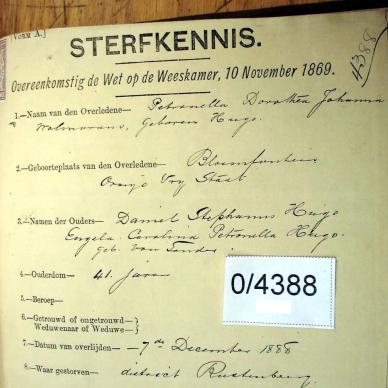 [VORM A.]
4388
STERFKENNIS.
Overeenkomstig de Wet op de Weeskamer, 10 November 1869.
1.—Naam van den Overledene— Petronella Dorothea Johanna
Walmarans, geboren Hugo.
2.—Geboorteplaats van den Overledene— Bloemfontein
Oranje Vry Staat
3.—Namen der Ouders— Daniel Stephanus Hugo
Engela Carolina Petronella Hugo.
geb. van
4.—Ouderdom— 41. jaar
0/4388
5.—Beroep—
6.—Getrouwd of ongetrouwd—}
Weduwenaar of Weduwe—}
7.—Datum van overlijden— 7de December 1888
8.—Waar gestorven— district Rustenburg